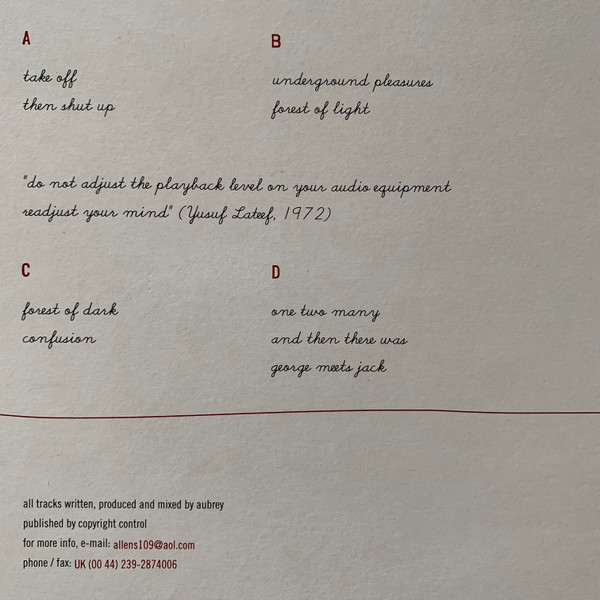 A
take off
then shut up
B
underground pleasures
forest of light
"do not adjust the playback level on your audio equipment
readjust your mind" (Yusuf Lateef, 1972)
C
forest of dark
confusion
D
one two many
and then there was
george meets jack
all tracks written, produced and mixed by aubrey
published by copyright control
for more info, e-mail: allens109@aol.com
phone / fax: UK (00 44) 239-2874006